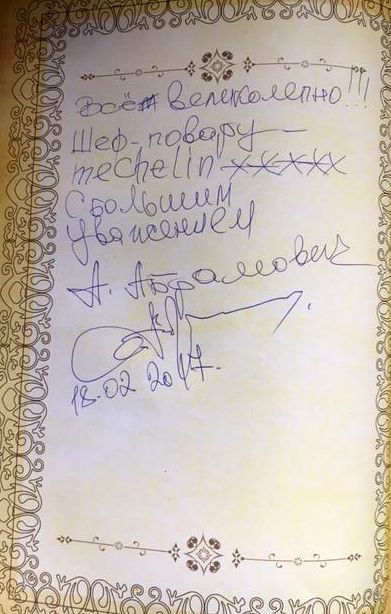 Всё великолепно!!!
Шеф-повару –
mechelin ХХХХХ
С большим
уважением
А. Абрамович
18.02 2017.